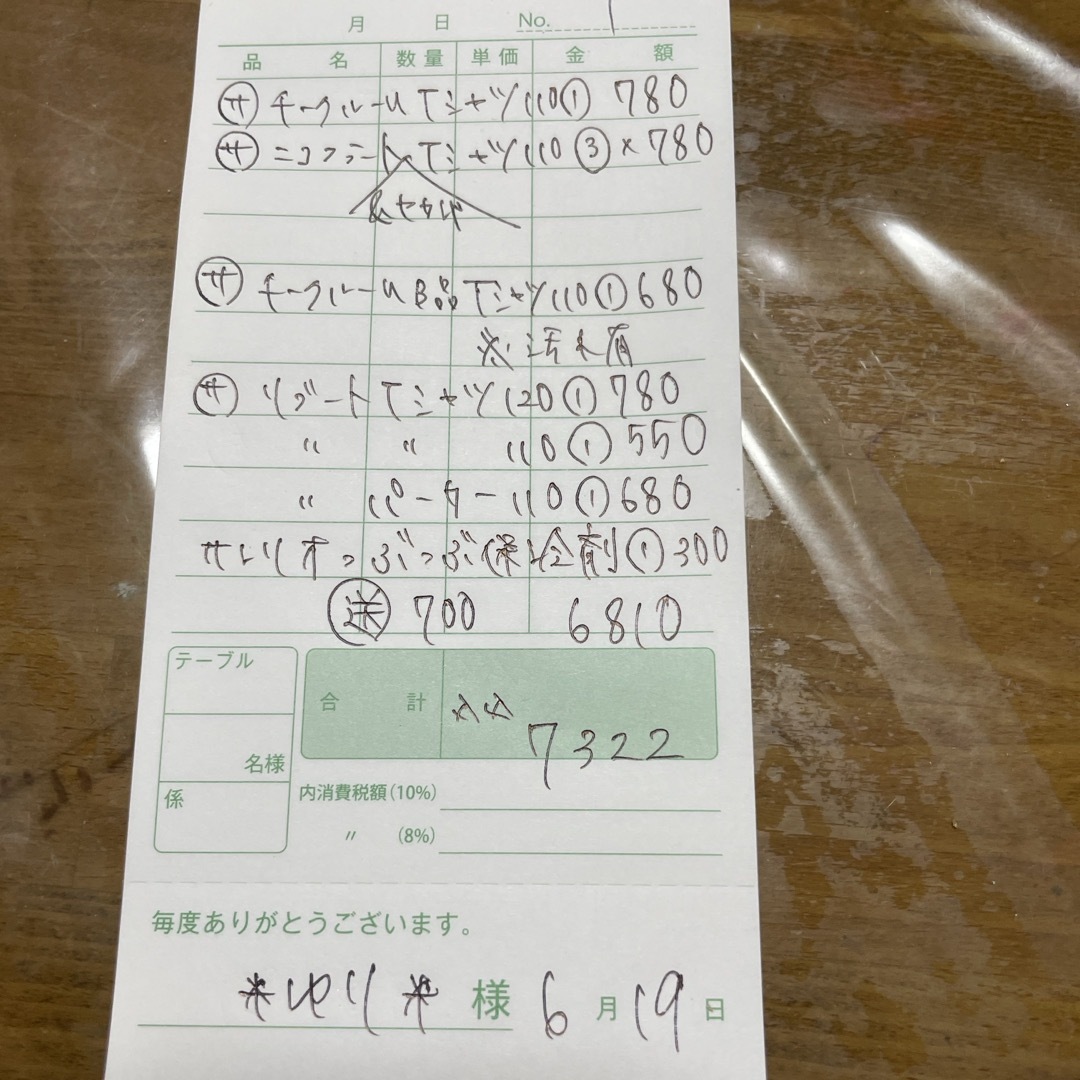 月 日 No.
品名 数量 単価 金額
㋚ チークルームTシャツ110① 780
㋚ ニコフラートTシャツ110③×780
㋚ チークルームB品Tシャツ110①680
※汚れ有
㋚ リブートTシャツ120①780
〃 〃 110①550
〃 パーカー110①680
サンリオつぶつぶ保冷剤①300
送 700 6810
テーブル
名様
係
合計 税込
7322
内消費税額(10%)
〃 (8%)
毎度ありがとうございます。
*ゆり* 様 6月19日